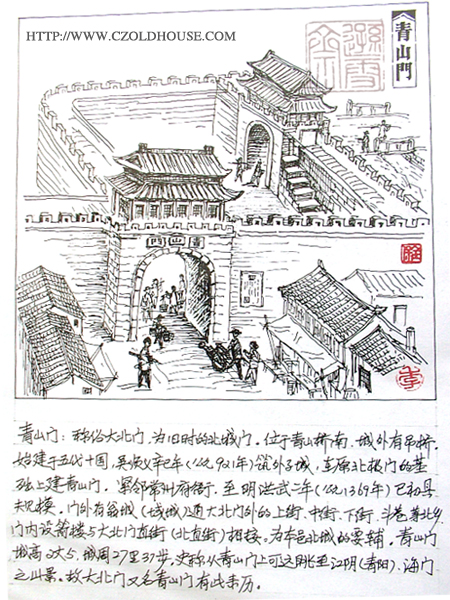 HTTP://WWW.CZOLDHOUSE.COM
青山門
青山門
青山门：称俗大北门，为旧时的北城门。位于青山桥南，城外有吊桥。
始建于五代十国，吴顺义辛巳年（公元921年）筑外子城，在原北楼门的基
础上建青山门。紧邻常州府衙。至明洪武二年（公元1369年）已初具
规模。门外有瓮城（城）通大北门外的上街、中街、下街、斗巷等北乡
门内设箭楼与大北门直街（北直街）相接。为本邑北城的要辅。青山门
城高2丈5，城周27里37步，史称从青山门上可远眺至江阴（青阳）、海门
之山景。故大北门又名青山门有此来历。